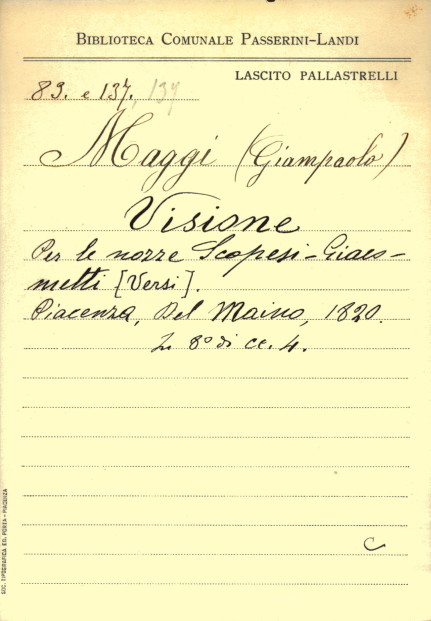 BIBLIOTECA COMUNALE PASSERINI-LANDI
LASCITO PALLASTRELLI
83. e 137. 137
Maggi (Giampaolo)
Visione
Per le nozze Scopesi-Giaco-
metti [Versi].
Piacenza, Del Maino, 1820.
In 8° di cc. 4.
C
SOC. TIPOGRAFICA ED. PORTA - PIACENZA